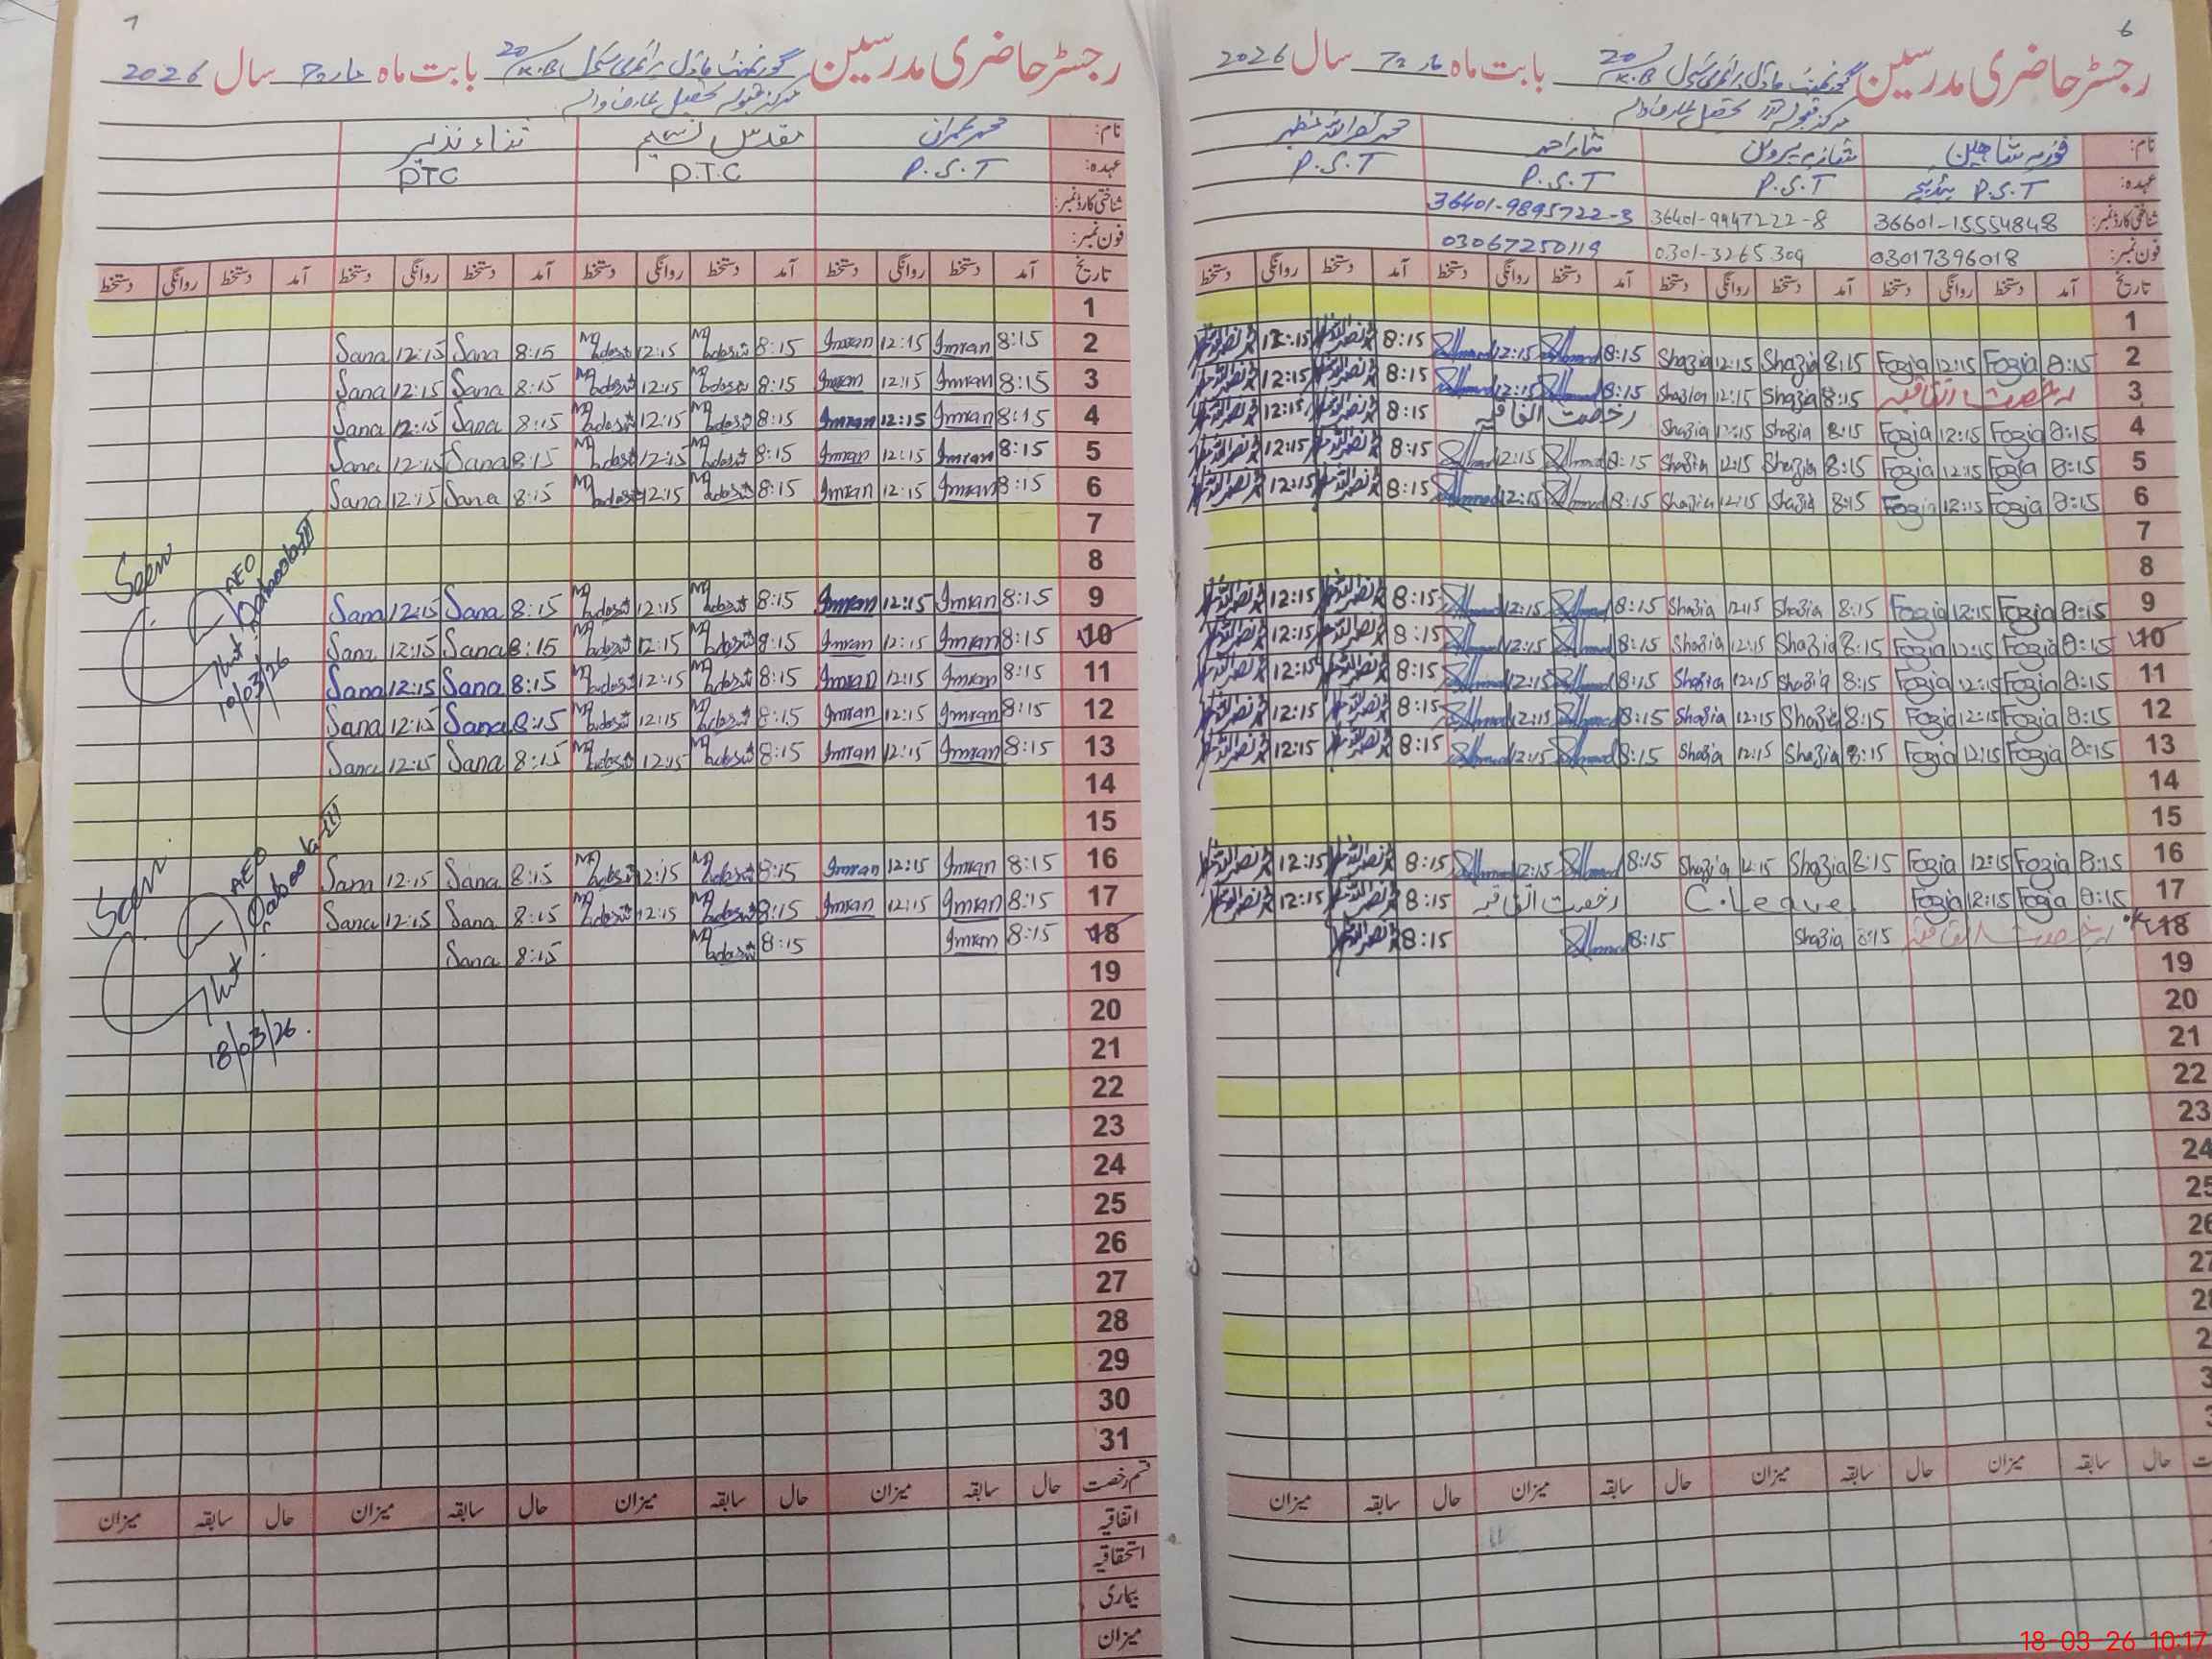 6
رجسٹر حاضری مدرسین گورنمنٹ ماڈل پرائمری سکول 20/K.B بابت ماہ مارچ سال 2026
نام: فوزیہ شاہین شازیہ پروین نثار احمد
عہدہ: P.S.T P.S.T P.S.T P.S.T
شناختی کارڈ نمبر: 36601-1555484-8 36401-9947222-8 36401-9895722-3
فون نمبر: 03017396018 0301-3265309 03067250119
تاریخ آمد دستخط روانگی دستخط آمد دستخط روانگی دستخط آمد دستخط روانگی دستخط آمد دستخط روانگی دستخط
1
2 8:15 Fozia 12:15 Fozia 8:15 Shazia 12:15 Shazia 8:15 Ahmad 12:15 Ahmad 8:15 12:15
3 رخصت اتفاقیہ 8:15 Shazia 12:15 Shazia 8:15 Ahmad 12:15 Ahmad 8:15 12:15
4 8:15 Fozia 12:15 Fozia 8:15 Shazia 12:15 Shazia رخصت اتفاقیہ 8:15 12:15
5 8:15 Fozia 12:15 Fozia 8:15 Shazia 12:15 Shazia 8:15 Ahmad 12:15 Ahmad 8:15 12:15
6 8:15 Fozia 12:15 Fozia 8:15 Shazia 12:15 Shazia 8:15 Ahmad 12:15 Ahmad 8:15 12:15
7
8
9 8:15 Fozia 12:15 Fozia 8:15 Shazia 12:15 Shazia 8:15 Ahmad 12:15 Ahmad 8:15 12:15
10 8:15 Fozia 12:15 Fozia 8:15 Shazia 12:15 Shazia 8:15 Ahmad 12:15 Ahmad 8:15 12:15
11 8:15 Fozia 12:15 Fozia 8:15 Shazia 12:15 Shazia 8:15 Ahmad 12:15 Ahmad 8:15 12:15
12 8:15 Fozia 12:15 Fozia 8:15 Shazia 12:15 Shazia 8:15 Ahmad 12:15 Ahmad 8:15 12:15
13 8:15 Fozia 12:15 Fozia 8:15 Shazia 12:15 Shazia 8:15 Ahmad 12:15 Ahmad 8:15 12:15
14
15
16 8:15 Fozia 12:15 Fozia 8:15 Shazia 12:15 Shazia 8:15 Ahmad 12:15 Ahmad 8:15 12:15
17 8:15 Fozia 12:15 Fozia C.Leave رخصت اتفاقیہ 8:15 12:15
18 رخصت اتفاقیہ 8:15 Shazia 8:15 Ahmad 8:15
19
20
21
22
23
24
25
26
27
حال سابقہ میزان حال سابقہ میزان حال سابقہ میزان حال سابقہ میزان
18-03-26 10:17
7
رجسٹر حاضری مدرسین گورنمنٹ ماڈل پرائمری سکول 20/K.B بابت ماہ مارچ سال 2026
نام: محمد عمران مقدس نسیم ثناء نذیر
عہدہ: P.S.T P.T.C PTC
شناختی کارڈ نمبر:
فون نمبر:
تاریخ آمد دستخط روانگی دستخط آمد دستخط روانگی دستخط آمد دستخط روانگی دستخط آمد دستخط روانگی دستخط
1
2 8:15 Imran 12:15 Imran 8:15 12:15 8:15 Sana 12:15 Sana
3 8:15 Imran 12:15 Imran 8:15 12:15 8:15 Sana 12:15 Sana
4 8:15 Imran 12:15 Imran 8:15 12:15 8:15 Sana 12:15 Sana
5 8:15 Imran 12:15 Imran 8:15 12:15 8:15 Sana 12:15 Sana
6 8:15 Imran 12:15 Imran 8:15 12:15 8:15 Sana 12:15 Sana
7
8
Seen
AEO
10/03/26
9 8:15 Imran 12:15 Imran 8:15 12:15 8:15 Sana 12:15 Sana
10 8:15 Imran 12:15 Imran 8:15 12:15 8:15 Sana 12:15 Sana
11 8:15 Imran 12:15 Imran 8:15 12:15 8:15 Sana 12:15 Sana
12 8:15 Imran 12:15 Imran 8:15 12:15 8:15 Sana 12:15 Sana
13 8:15 Imran 12:15 Imran 8:15 12:15 8:15 Sana 12:15 Sana
14
15
16 8:15 Imran 12:15 Imran 8:15 12:15 8:15 Sana 12:15 Sana
17 8:15 Imran 12:15 Imran 8:15 12:15 8:15 Sana 12:15 Sana
18 8:15 Imran 8:15 8:15 Sana
Seen
AEO
18/03/26.
19
20
21
22
23
24
25
26
27
28
29
30
31
قسم رخصت حال سابقہ میزان حال سابقہ میزان حال سابقہ میزان حال سابقہ میزان
اتفاقیہ
استحقاقیہ
بیماری
میزان